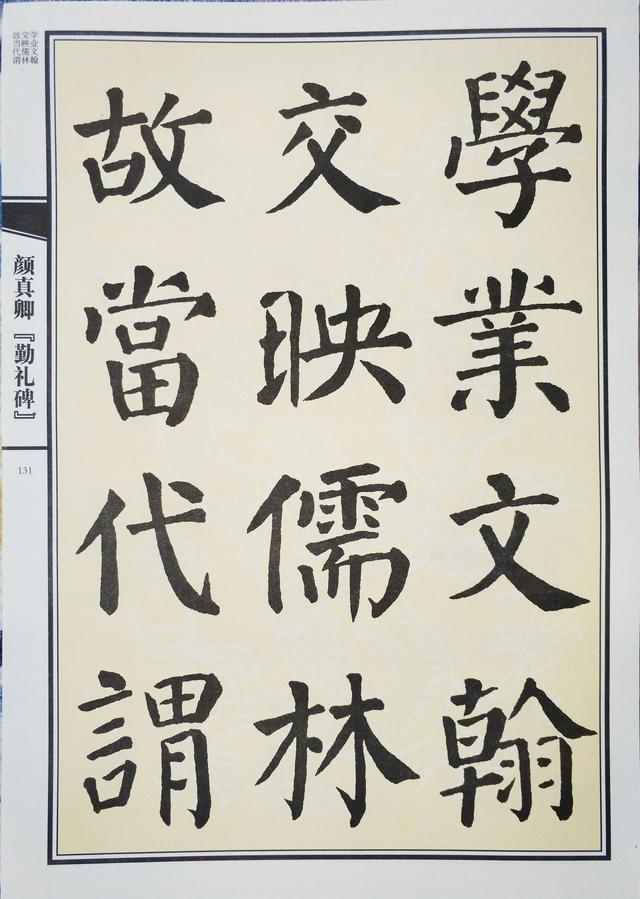 學業文翰
交映儒林
故當代謂
学业文翰
交映儒林
故当代谓
颜真卿『勤礼碑』
131